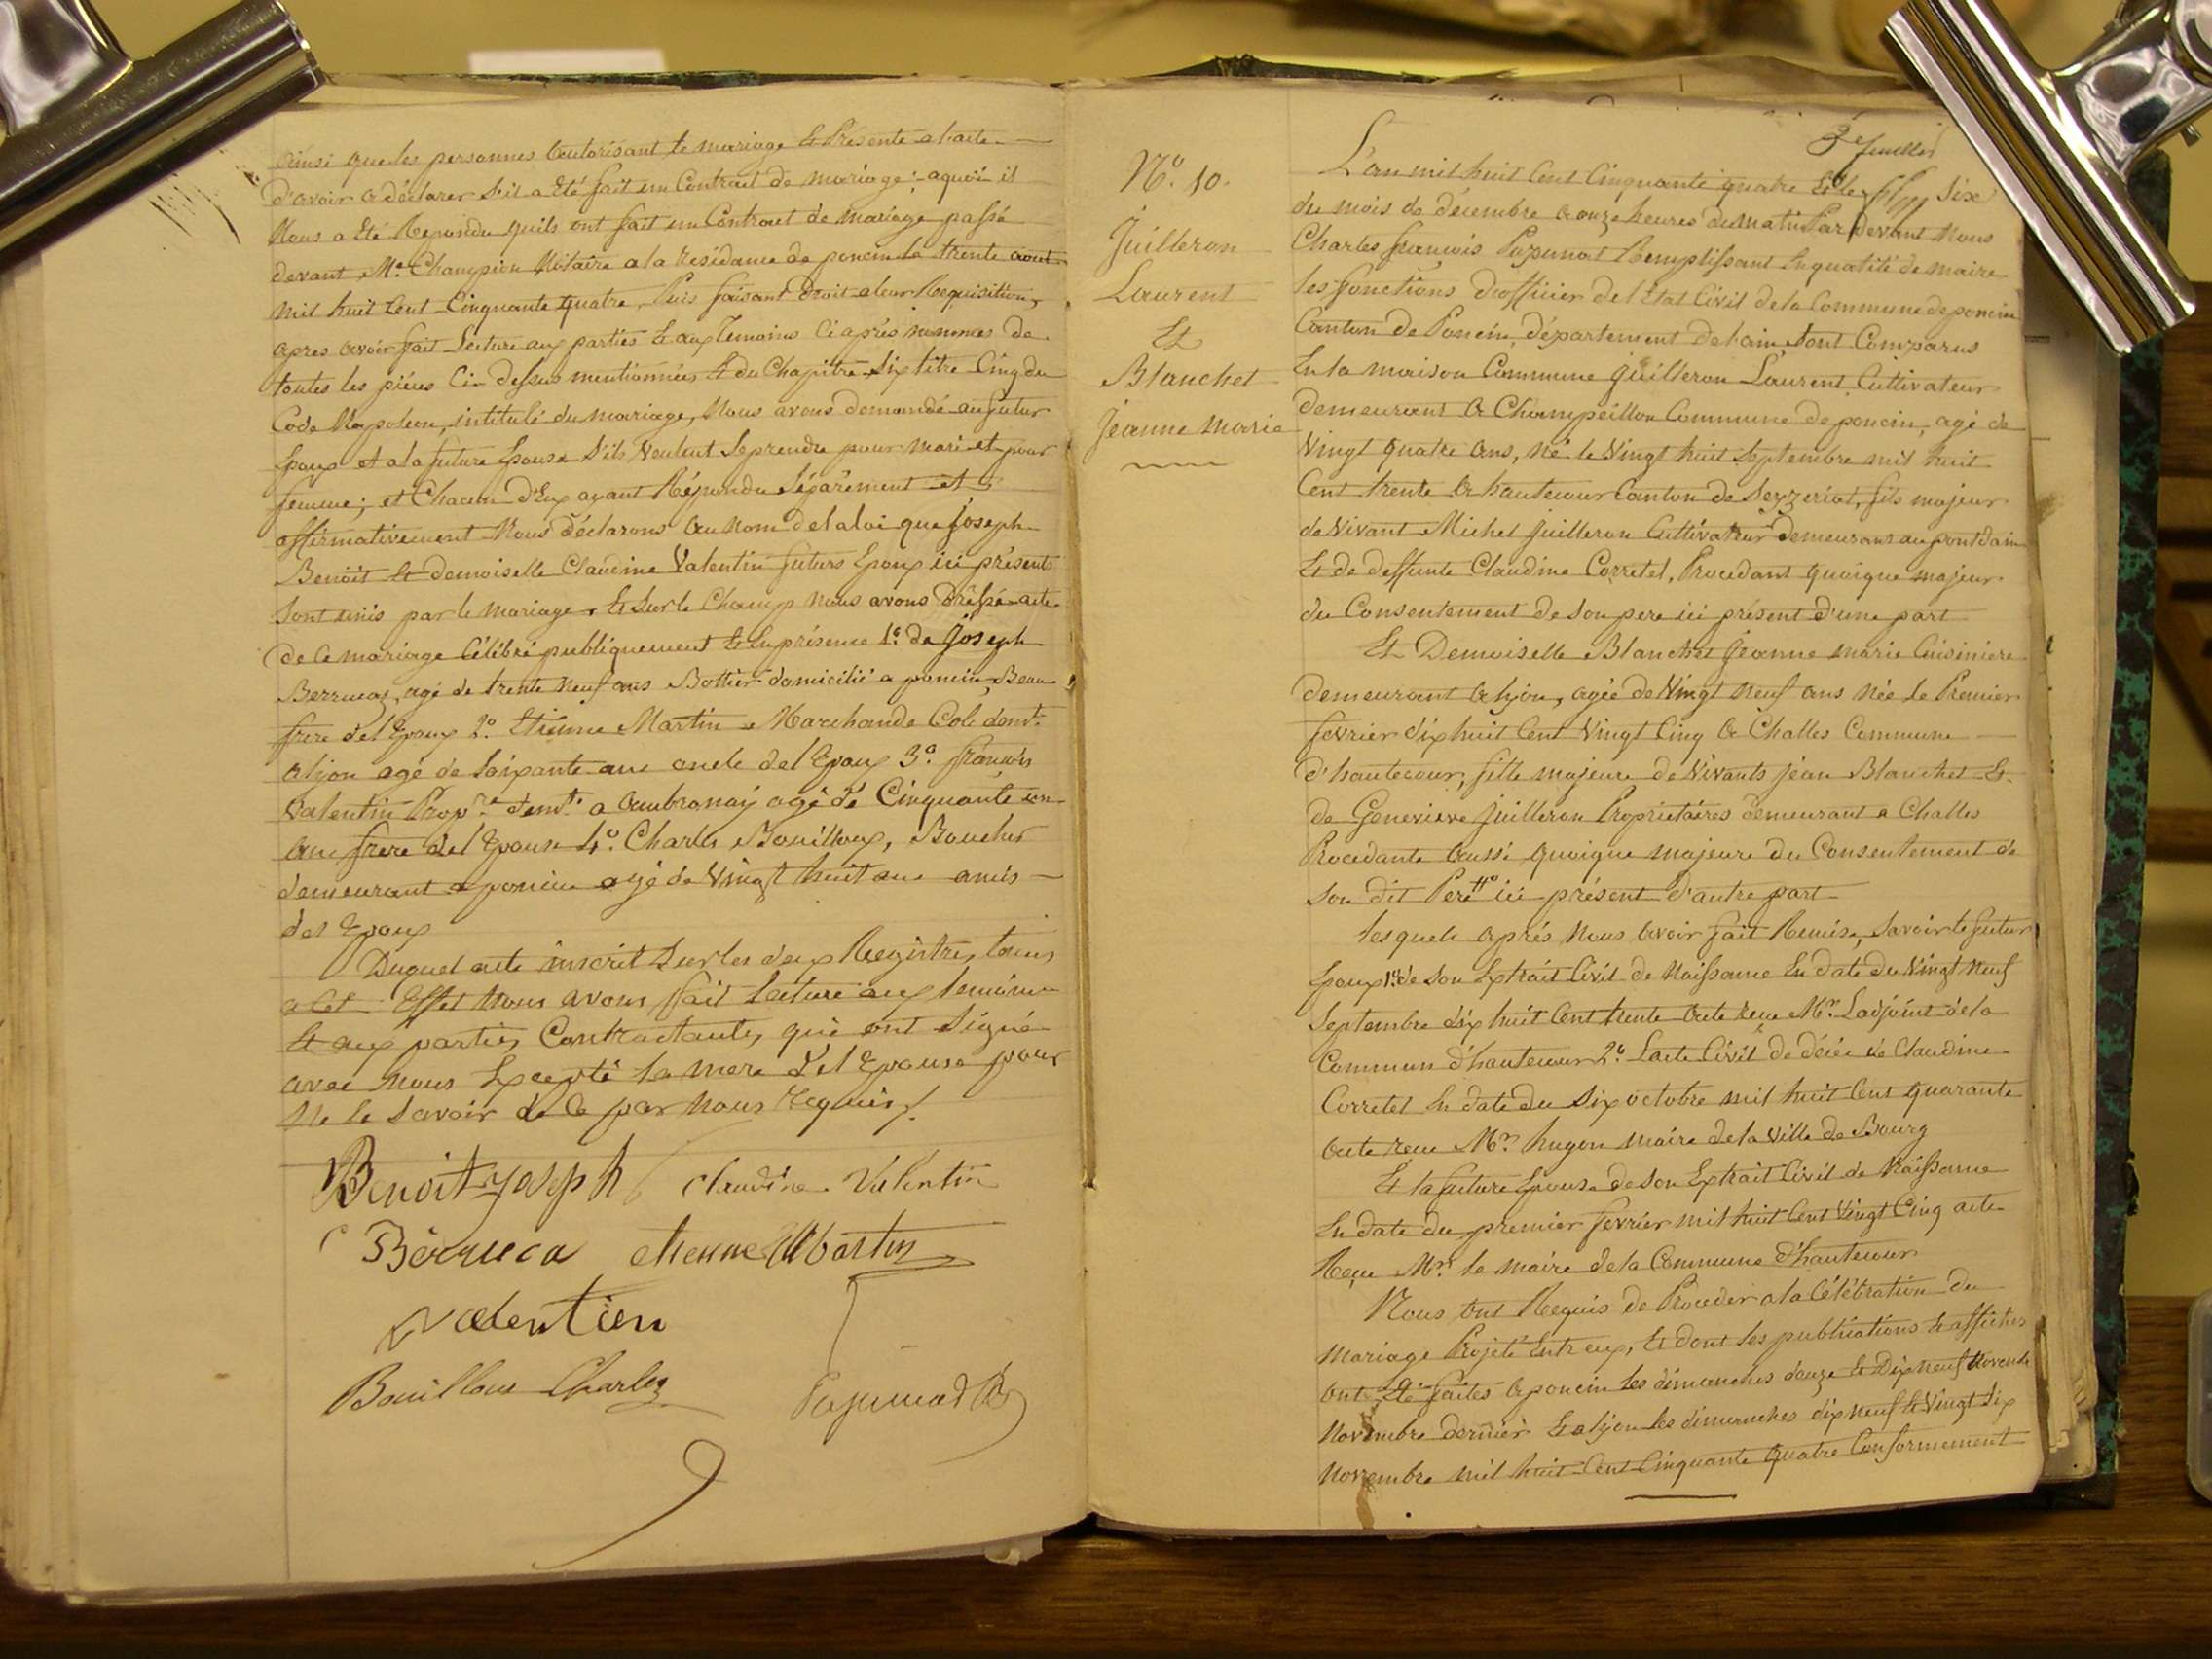 ainsi que les personnes autorisant le mariage Et Présente a l'acte
d'avoir a déclarer s'il a Eté fait un Contrat de mariage; a quoi il
Nous a Eté Repondu quils ont fait un Contract de mariage passé
devant Me Champion Notaire a la residance de poncin le trente aout
mil huit Cent Cinquante quatre, Puis faisant Droit a leur Requisition,
apres avoir fait Lecture aux parties Et aux Temoins Ci après nommes de
toutes les piéces Ci-Dessus mentionnées Et du Chapitre Six titre Cinq du
Code Napoleon, intitulé du mariage, Nous avons demandé au futur
Epoux et a la future Epouse S'ils Veulent Se prendre pour mari et pour
femme; et Chacun D'Eux ayant Répondu Séparément et
affirmativement Nous déclarons au Nom de la loi que joseph
Benoit Et demoiselle Claudine Valentin futurs Epoux ici présents
Sont unis par le mariage, Et Sur le Champ Nous avons Dréssé acte
de Ce mariage Célébré publiquement Et En présence 1e. de Joseph
Berrucaz, agé de trente Neuf ans Bottier domicilié a poncin, Beau
frere de l'Epoux 2o. Etienne Martin Marchande Col. demt.
a lyon agé de Soixante ans oncle de l'Epoux 3o. françois
Valentin Propre. demt. a ambronay agé de Cinquante un
ans frere de l'Epouse 4o. Charles Bouilloux, Boucher
demeurant a poncin agé de Vingt huit ans amis
de l'Epoux
Duquel acte inscrit Sur les deux Registres tenus
a Cet Effet Nous avons fait Lecture aux temoins
Et aux parties Contractantes qui ont Signé
avec Nous Excepté la mere de l'Epouse pour
Ne le Savoir de Ce par Nous Requis
Benoit joseph Claudine Valentin
Berruca etienne Martin
Valentien
Bouilloux Charles
No. 10.
Juilleron
Laurent
Et
Blanchet
Jeanne Marie
3 feuillet
L'an mil huit Cent Cinquante quatre Et le Six
du mois de décembre a onze heures du matin Par devant Nous
Charles françois Remplissant En qualité de maire
les fonctions d'officier de l'Etat Civil de la Commune de poncin
Canton de Poncin, département de l'ain Sont Comparus
En la maison Commune Juilleron Laurent Cultivateur
demeurant a Champeillon Commune de poncin, agé de
Vingt quatre ans, né le Vingt huit Septembre mil huit
Cent trente a hautecour Canton de Ceyzeriat, fils majeur
de Vivant Michel Juilleron Cultivateur demeurant au pont dain
Et de deffunte Claudine Corretel, Procedant quoique majeur
du Consentement de Son pere ici présent d'une part
Et Demoiselle Blanchet Jeanne marie Cuisiniere
demeurant a lyon, agée de Vingt neuf ans née le Premier
fevrier dix huit Cent Vingt Cinq a Challes Commune
d'hautecour, fille majeure de Vivants jean Blanchet Et
de Genevieve Juilleron Propriétaires demeurant a Challes
Procedante aussi quoique majeure du Consentement de
Son dit Pere ici présent d'autre part
lesquels aprés Nous avoir fait Remise, Savoir le futur
Epoux 1o. de Son Extrait Civil de Naissance En date du Vingt Neuf
Septembre dix huit Cent trente acte reçu Mr. Ladjoint de la
Commun d'hautecour 2o. Lacte Civil de décée de Claudine
Corretel En date du Six octobre mil huit Cent quarante
acte reçu Mr. hugon maire de la Ville de Bourg
Et la future Epouse de Son Extrait Civil de Naissance
En date du premier fevrier mil huit Cent Vingt Cinq acte
Reçu Mr. le maire de la Commune d'hautecour
Nous ont Requis de Proceder a la Célébration du
mariage Projeté Entr'eux, Et dont les publications Et affiches
ont Eté faites a poncin les dimanches douze Et Dix neuf Novembre
Novembre dernier Et a lyon les dimanches dix neuf Et Vingt Six
Novembre mil huit Cent Cinquante quatre Conformement